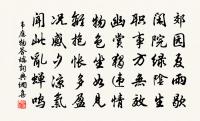 郊园夏雨歇
闲院绿阴生
职事方无效
幽赏独违情
物色坐如见
离抱怅多盈
况感夕凉氣
闻此乱蝉鸣
韦应物答端